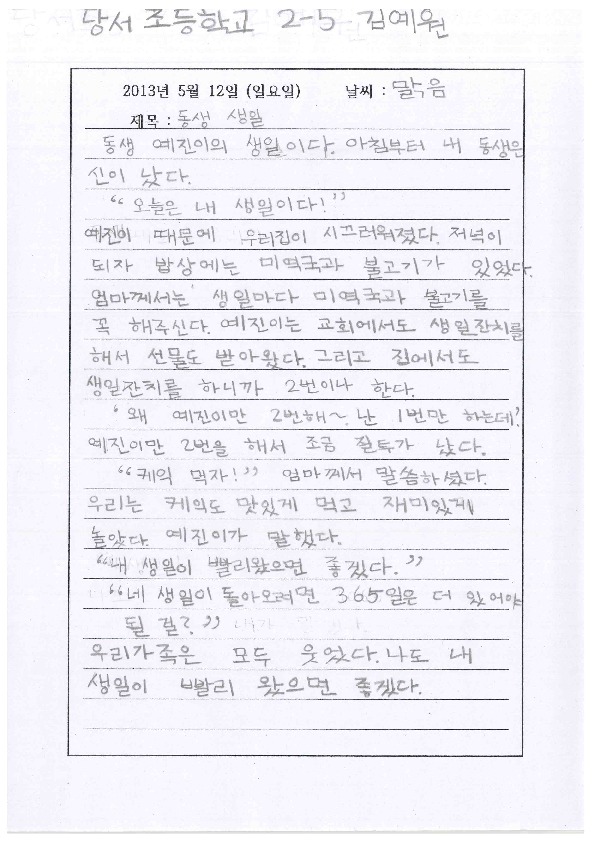 당서 초등학교 2-5 김예원
2013년 5월 12일 (일요일) 날씨 : 맑음
제목 : 동생 생일
동생 예진이의 생일이다. 아침부터 내 동생은
신이 났다.
“오늘은 내 생일이다!”
예진이 때문에 우리집이 시끄러워졌다. 저녁이
되자 밥상에는 미역국과 불고기가 있었다.
엄마께서는 생일마다 미역국과 불고기를
꼭 해주신다. 예진이는 교회에서도 생일잔치를
해서 선물도 받아왔다. 그리고 집에서도
생일잔치를 하니까 2번이나 한다.
‘왜 예진이만 2번해~. 난 1번만 하는데’.
예진이만 2번을 해서 조금 질투가 났다.
“케익 먹자!” 엄마께서 말씀하셨다.
우리는 케익도 맛있게 먹고 재미있게
놀았다. 예진이가 말했다.
“내 생일이 빨리왔으면 좋겠다.”
“네 생일이 돌아오려면 365일은 더 있어야
될 걸?”
우리가족은 모두 웃었다. 나도 내
생일이 빨리 왔으면 좋겠다.